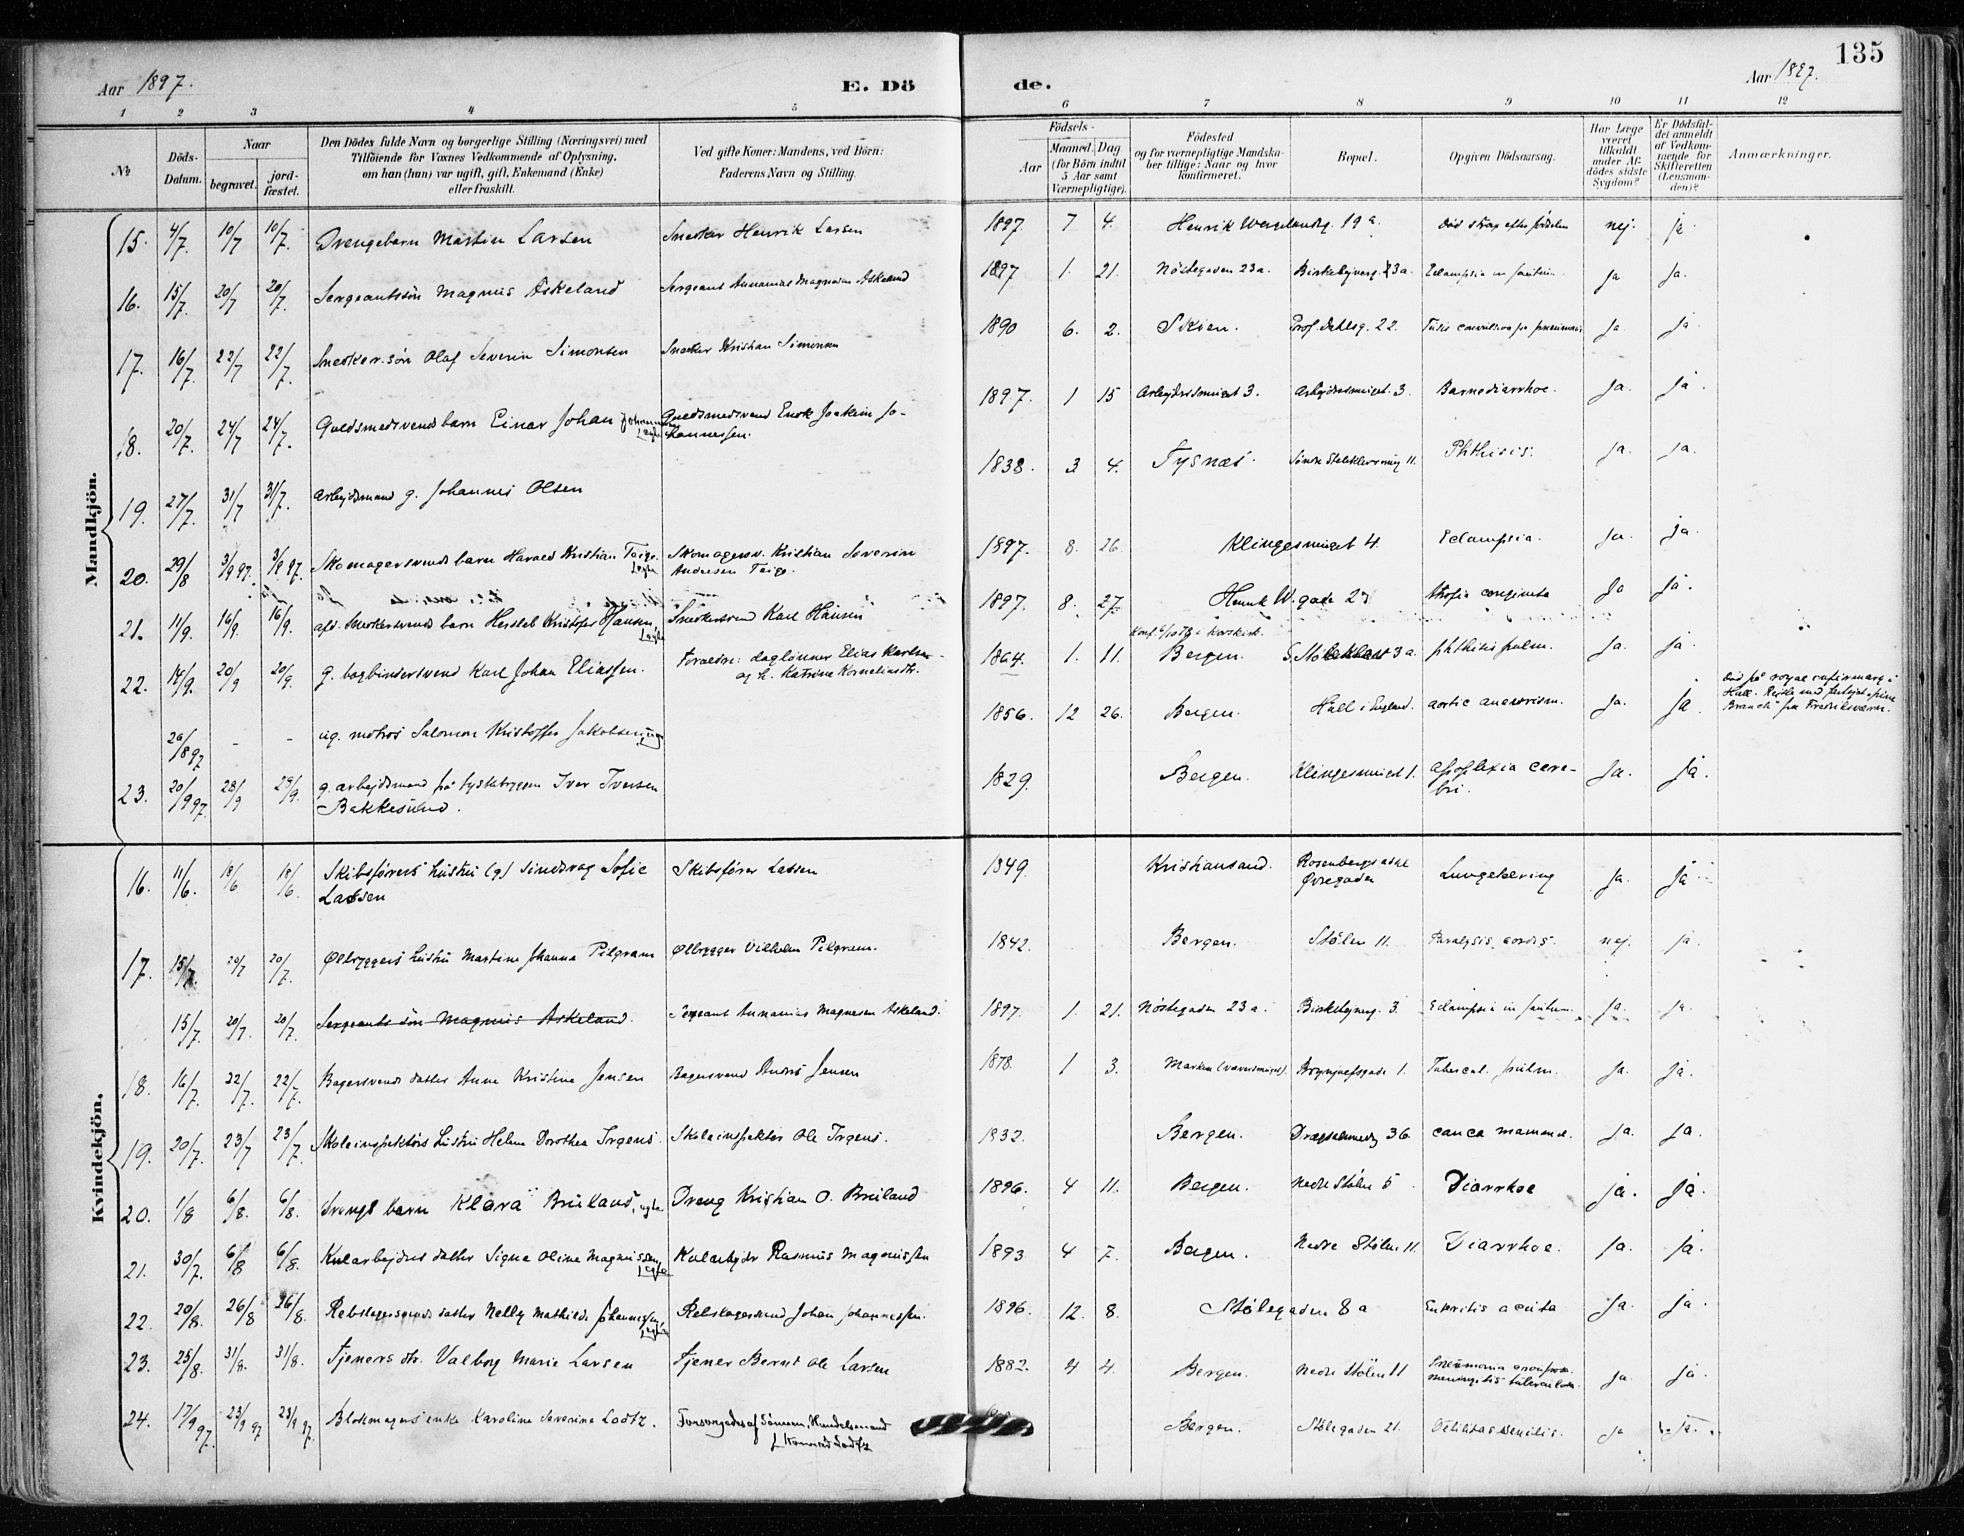 135
Aar 1897. E. Dö de. Aar 1897.
1 2 3 4 5 6 7 8 9 10 11 12
No
Döds-Datum.
Naar begravet. jord-fæstet.
Den Dödes fulde Navn og borgerlige Stilling (Næringsvei) med Tilföiende for Voxnes Vedkommende af Oplysning, om han (hun) var ugift, gift, Enkemand (Enke) eller fraskilt.
Ved gifte Koner: Mandens, ved Börn: Faderens Navn og Stilling.
Födsels- Aar Maaned. Dag (for Börn indtil 5 Aar samt Værnepligtige).
Födested og for værnepligtige Mandskaber tillige: Naar og hvor konfirmeret.
Bopæl.
Opgiven Dödsaarsag.
Har Læge været tilkaldt under Afdödes sidste Sygdom?
Er Dödsfaldet anmeldt af Vedkommende for Skifteretten (Lensmanden)?
Anmærkninger.
Mandkjön.
15. 4/7 10/7 10/7. Drengebarn Martin Larsen Snedker Henrik Larsen 1897 7 4. Henrik Wergelandsg. 19 a. Död strax efter födselen nej. ja.
16. 15/7. 20/7 20/7. Sergeantssön Magnus Askeland Sergeant Annanias Magnesen Askeland 1897 1. 21. Nöstegaden 23a. 3a. Eclampsia in fantum. ja ja.
17. 16/7. 22/7 22/7. Snedker.sön Olaf Severin Simonsen Snedker Kristian Simonsen 1890 6. 2. Skien. Prof. Dahlsg. 22. ja. ja.
18. 20/7. 24/7 24/7. Guldsmedsvends barn Einar Johan Johannessen Guldsmedsvend Enok Joakim Johannessen. 1897. 1 15 Arbeidersmuget 3. Arbeidersmuget. 3 Barnediarrhoe. ja. ja.
19. 27/7. 31/7 31/7. Arbejdsmand g. Johannes Olsen 1838. 3 4. Tysnæs. Phthisis. ja. ja.
20. 29/8 3/9 97. 3/9 97. Skomagersvends barn Harald Kristian Teige. Skomagersv. Kristian Severin Andersen Teige. 1897. 8. 26. Klingesmuget 4. Eclampsia. ja. ja.
21. 11/9. 16/9. 16/9. afd. Snedkersvends barn Hersleb Kristofer Hansen, Snedkersvend Karl Hansen 1897. 8. 27. Henrik W. gade 27 ja ja.
22. 14/9. 20/9 20/9. g. bogbindersvend Karl Johan Eliassen. Foraeldre: daglønner Elias Karlsen og h. Katrine Korneliusdtr. 1864. 1. 11. Bergen. 3a. phthisis pulm. ja. ja.
26/8 97 - - ug. matros Salomon Kristoffer Jakobsen, 1856. 12 26. Bergen. Hull i England. aortic aneurism. ja. ja. Död på royal infirmary i Hull.
23. 20/9 97. 28/9 29/9. g. arbejdsmand på tyskebryggen Iver Iversen Bakkesund. 1829. Bergen. Klingesmuget 1. apoplexia cerebri. ja. ja.
Kvindekjön.
16. 11/6. 18/6 18/6. Skibsførers hustru (g) Sofie Lassen Skibsfører Lassen 1849. Kristiansand. Øvregaden ja. ja
17. 15/7. 20/7 20/7. Ølbryggers hustru Martine Johanna Pilgram Ølbrygger Vilhelm Pilgram. 1842. Bergen. Stølen 11. Paralysis cordis. nej. ja.
15/7. 20/7. 20/7. Sergeants sön Magnus Askeland. Sergeant Annanias Magnesen Askeland. 1897. 1. 21. Nöstegaden 23 a. 3. Eclampsia in fantum. ja. ja.
18. 16/7. 22/7. 22/7. Bagersvends datter Anne Kristine Jensen Bagersvend Jensen 1878. 1 3. Marken Brynjulfsgade 1. Tubercul. pulm. ja. ja.
19. 20/7. 23/7 23/7. Skoleinspektørs hustru Helene Dorothea Irgens. Skoleinspektør Ole Irgens. 1832. Bergen. 36. cancer mammae. ja. ja.
20. 1/8 6/8. 6/8. Drengs barn Klara Breiland, Dreng Kristian O. Breiland 1896. 4 11. Bergen. Nedre Stølen 5 Diarrhoe ja. ja.
21. 30/7. 6/8 6/8. Kularbejders datter Signe Oline Magnussen Kularbejder Rasmus Magnussen 1893 4 7. Bergen. Nedre Stølen 11. Diarrhoe. ja. ja.
22. 20/8. 26/8 26/8. Rebslagersvends datter Nelly Mathilde Johannessen, Rebslagersvend Johan Johannessen. 1896. 12. 8. Stølegaden 8 a Enteritis acuta ja. ja.
23. 25/8. 31/8. 31/8. Tjeners dtr. Valborg Marie Larsen Tjener Bernt Ole Larsen 1882. 4 4. Bergen. Nedre Stølen 11 Pneumonia meningitis ja. ja
24. 17/9 97. 23/9 97 23/9 97. Blokmagers enke Karoline Severine Lodtz. Forsørgedes af Sönnen, Handelsmand Konrad Lodtz Bergen. Stølegaden 21. senilis. ja ja.